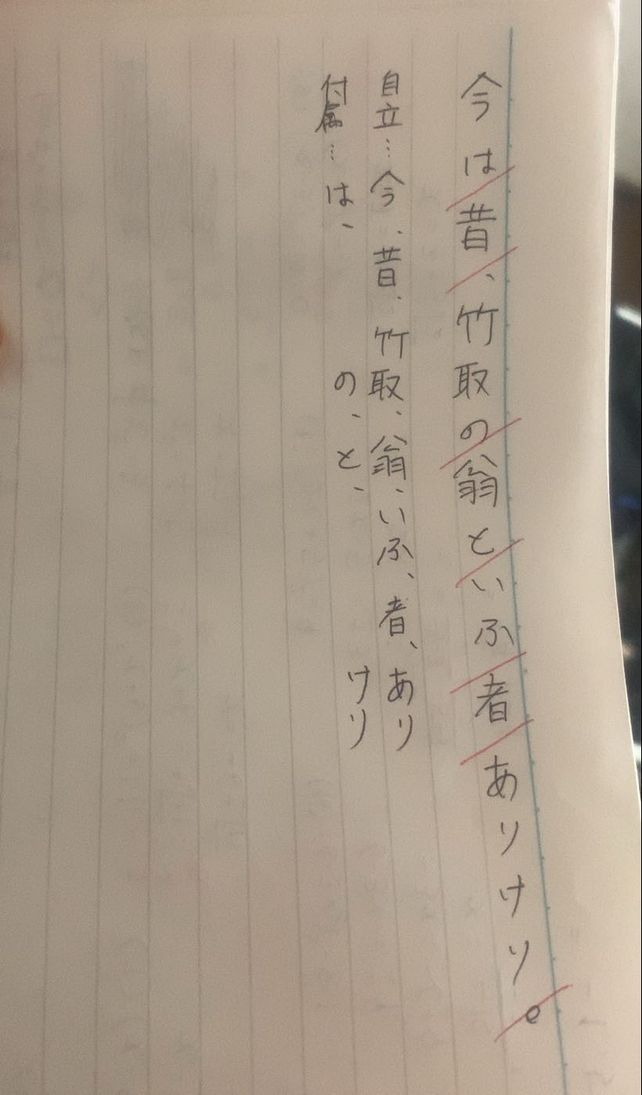 今は昔、竹取の翁といふ者ありけり。
自立…今、昔、竹取、翁、いふ、者、あり
付属…は、の、と、けり